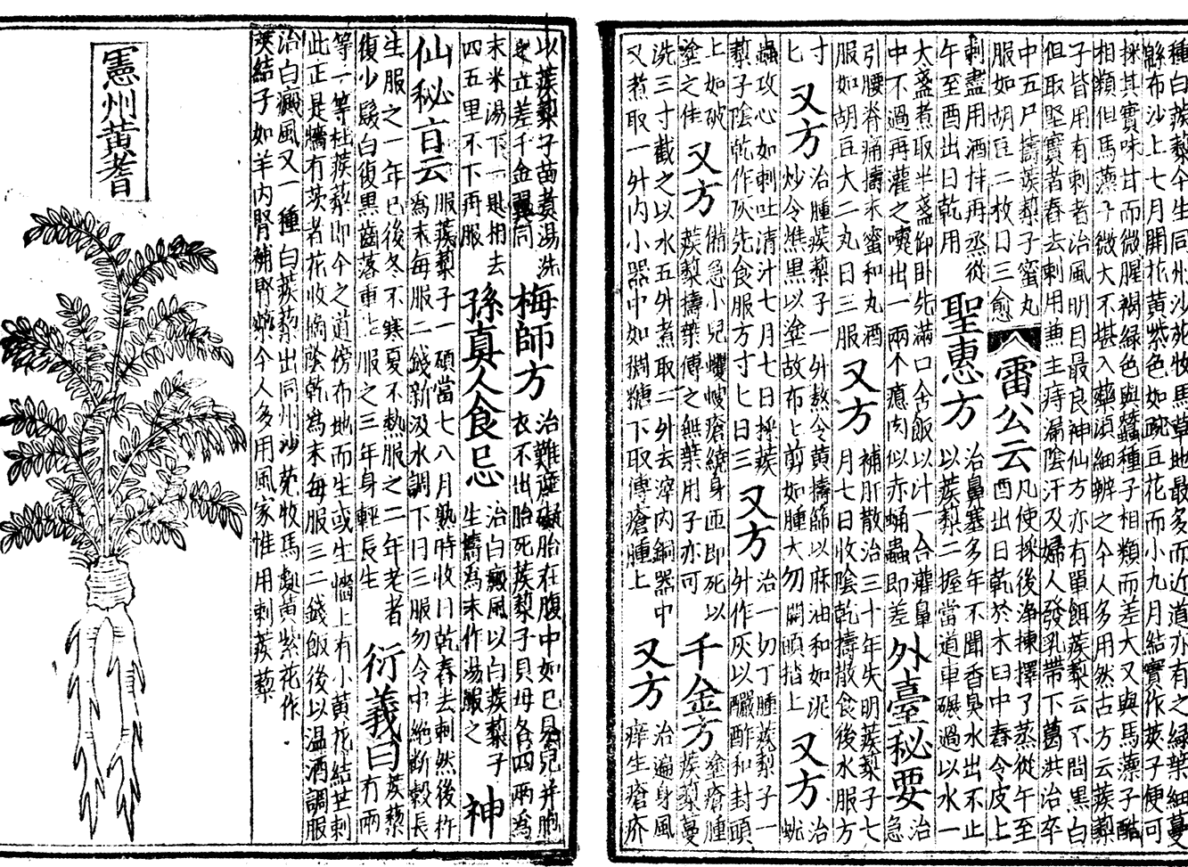 種白蒺藜今生同州沙苑牧馬草地最多而近道亦有之綠葉細蔓
緜布沙上七月開花黃紫色如豌豆花而小九月結實作莢子便可
採其實味甘而微腥褐綠色與蠶種子相類而差大又與馬薸子酷
相類但馬薸子微大不堪入藥須細辨之今人多用然古方云蒺藜
子皆用有刺者治風明目最良神仙方亦有單餌蒺藜云不問黑白
但取堅實者舂去刺用兼主痔漏陰汗及婦人發乳帶下葛洪治卒
中五尸擣蒺藜子蜜丸
服如胡豆二枚日三愈
雷公云
凡使採後淨揀擇了蒸從午至
酉出日乾於木臼中舂令皮上
刺盡用酒拌再蒸從
午至酉出日乾用
聖惠方
治鼻塞多年不聞香臭水出不止
以蒺藜二握當道車碾過以水一
大盞煮取半盞仰臥先滿口含飯以汁一合灌鼻
中不過再灌之嚏出一兩个瘜肉似赤蛹蟲即差
外臺秘要
治
急
引腰脊痛擣末蜜和丸酒
服如胡豆大二丸日三服
又方
補肝散治三十年失明蒺藜子七
月七日收陰乾擣散食後水服方
寸
匕
又方
治腫蒺藜子一升熬令黃擣篩以麻油和如泥
炒令燋黑以塗故布上剪如腫大勿開頭搨上
又方
治
蚘
蟲攻心如刺吐清汁七月七日採蒺
藜子陰乾作灰先食服方寸匕日三
又方
治一切丁腫蒺藜子一
升作灰以釅酢和封頭
上如破
塗之佳
又方
備急小兒蠼螋瘡繞身匝即死以
蒺藜擣葉傅之無葉用子亦可
千金方
塗瘡腫
蒺藜蔓
洗三寸截之以水五升煮取二升去滓內銅器中
又煮取一升內小器中如稠糖下取傅瘡腫上
又方
治遍身風
痒生瘡疥
以蒺藜子苗煮湯洗
之立差千金翼同
梅師方
治難產礙胎在腹中如已見兒并胞
衣不出胎死蒺藜子貝母各四兩為
末米湯下一匙相去
四五里不下再服
孫真人食忌
治白癜風以白蒺藜子
生擣為末作湯服之
神
仙秘旨云
服蒺藜子一碩當七八月熟時收日乾舂去刺然後杵
為末每服二錢新汲水調下日三服勿令中絕斷穀長
生服之一年已後冬不寒夏不熱服之二年老者
復少髮白復黑齒落重生服之三年身輕長生
衍義曰
蒺藜
有兩
等一等杜蒺藜即今之道傍布地而生或生墻上有小黃花結芒刺
此正是墻有茨者花收摘陰乾為末每服三二錢飯後以溫酒調服
治白癜風又一種白蒺藜出同州沙苑牧馬處黃紫花作
莢結子如羊內腎補腎藥今人多用風家惟用刺蒺藜
憲州黃耆